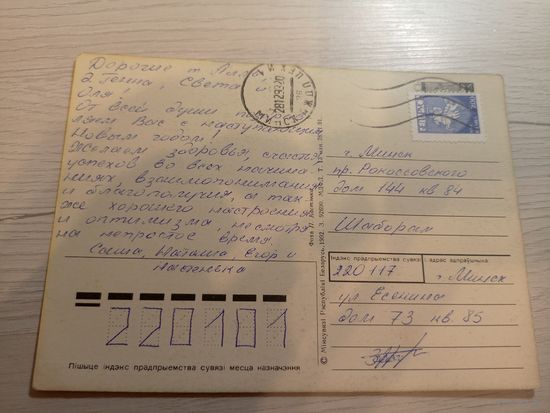 Дорогие т. Алла,
д. Гена, Света и
Оля!
От всей души поздрав-
ляем Вас с наступающим
Новым годом!
Желаем здоровья, счастья,
успехов во всех начина-
ниях, взаимопонимания
и благополучия, а так-
же хорошего настроения
и оптимизма, несмотря
на непростое время.
Саша, Наташа, Егор и
Настенька
220101
Пішыце індэкс прадпрыемства сувязі месца назначэння
МІНСК
г. Минск
пр. Рокоссовского
дом 144 кв. 84
Індэкс прадпрыемства сувязі і адрас адпраўшчыка
220117 г. Минск
ул. Есенина
дом 73 кв. 85
© Мінсувязі Рэспублікі Беларусь, 1993.